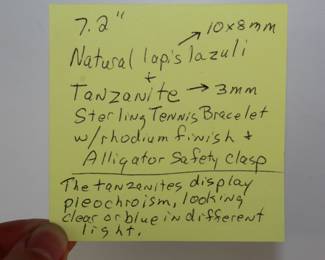 7.2" 10x8mm
Natural lapis lazuli
+
Tanzanite → 3mm
Sterling Tennis Bracelet
w/rhodium finish +
Alligator Safety clasp
The tanzanites display
pleochroism, looking
clear or blue in different
light.